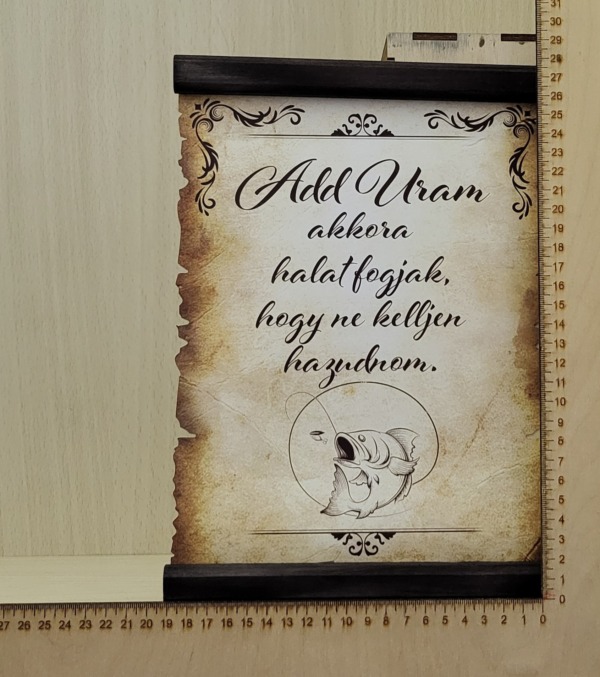 Add Uram
akkora
halat fogjak,
hogy ne kelljen
hazudnom.
31
30
29
28
27
26
25
24
23
22
21
20
19
18
17
16
15
14
13
12
11
10
9
8
7
6
5
4
3
2
1
0
27 26 25 24 23 22 21 20 19 18 17 16 15 14 13 12 11 10 9 8 7 6 5 4 3 2 1 0